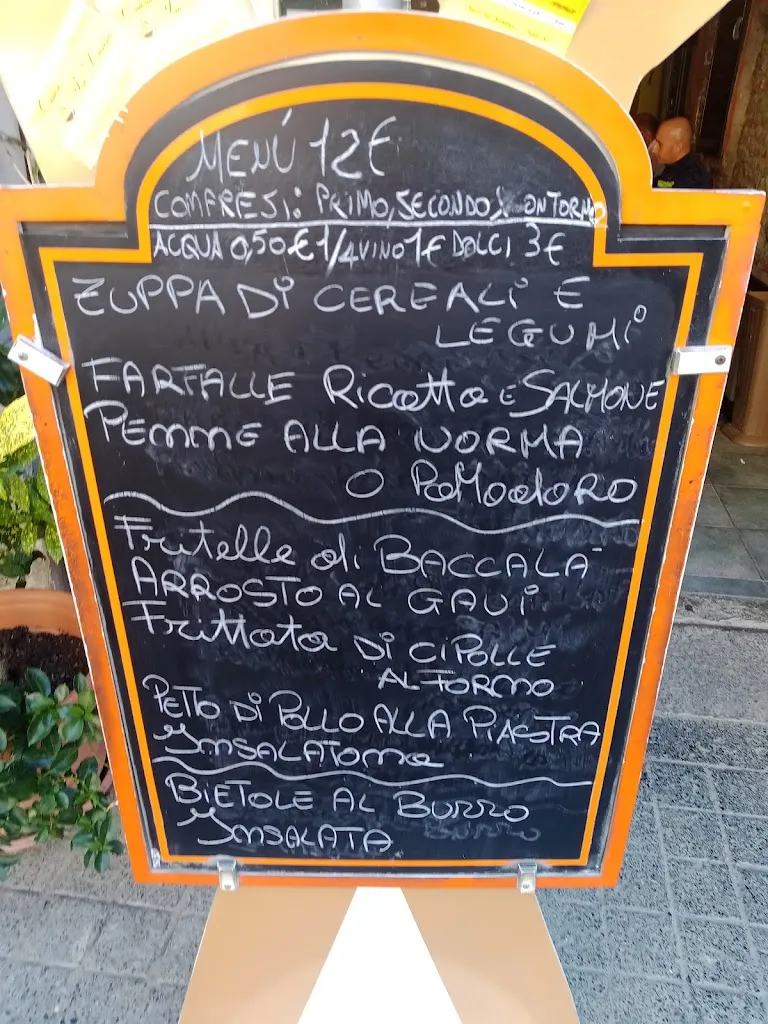 MENÚ 12€
COMPRESI: PRIMO, SECONDO, CONTORNO
ACQUA 0,50€ 1/4 VINO 1€ DOLCI 3€
ZUPPA DI CEREALI E
LEGUMI
FARFALLE Ricotta E SALMONE
PENNE ALLA NORMA
O POMODORO
Frittelle di BACCALÀ
ARROSTO AL GAVI
Frittata DI CIPOLLE
AL FORNO
PETTO DI POLLO ALLA PIASTRA
INSALATONA
BIETOLE AL BURRO
INSALATA